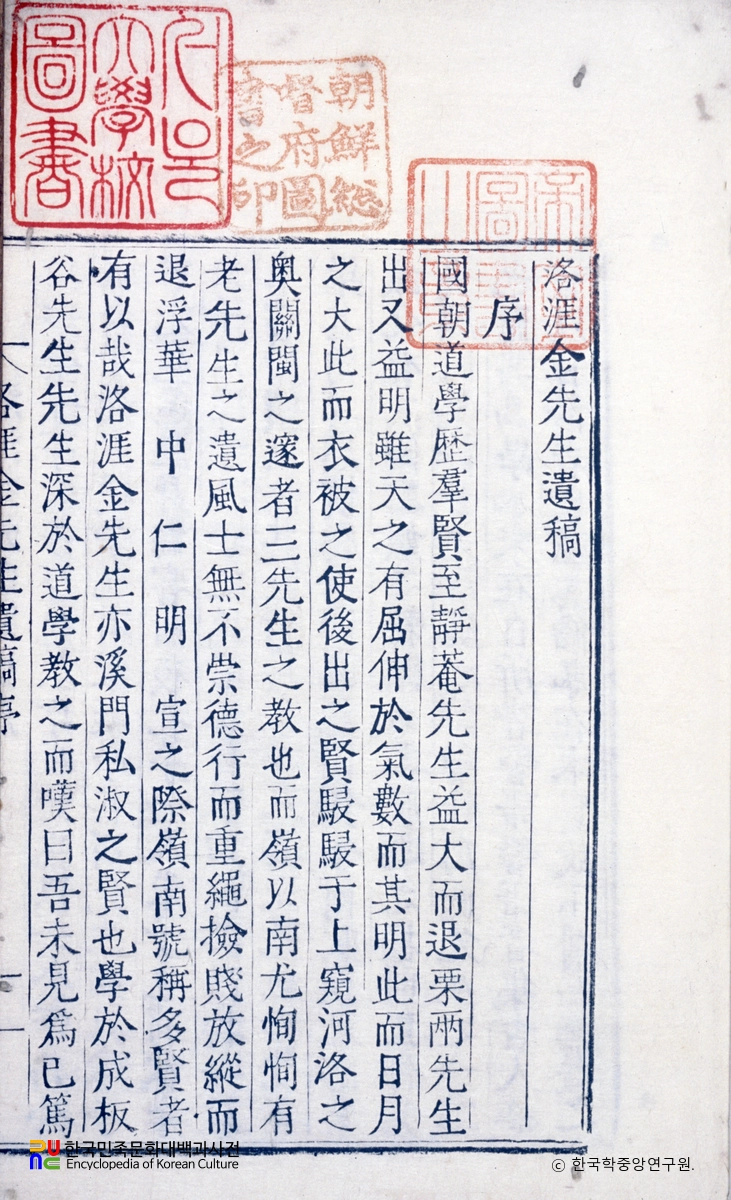 洛涯金先生遺稿
序
國朝道學歷羣賢至靜菴先生益大而退栗两先生
出又益明雖天之有屈伸於氣數而其明此而日月
之大此而衣被之使後出之賢駸駸于上窺河洛之
奥關閩之邃者三先生之教也而嶺以南尤恂恂有
老先生之遺風士無不崇德行而重繩撿賤放縱而
退浮華 中 仁 明 宣之際嶺南號稱多賢者
有以哉洛涯金先生亦溪門私淑之賢也學於成板
谷先生先生深於道學教之而嘆曰吾未見爲己篤
洛涯金先生遺稿序
一
朝鮮総督府圖書之印
大學校圖書
한국민족문화대백과사전
Encyclopedia of Korean Culture
© 한국학중앙연구원.